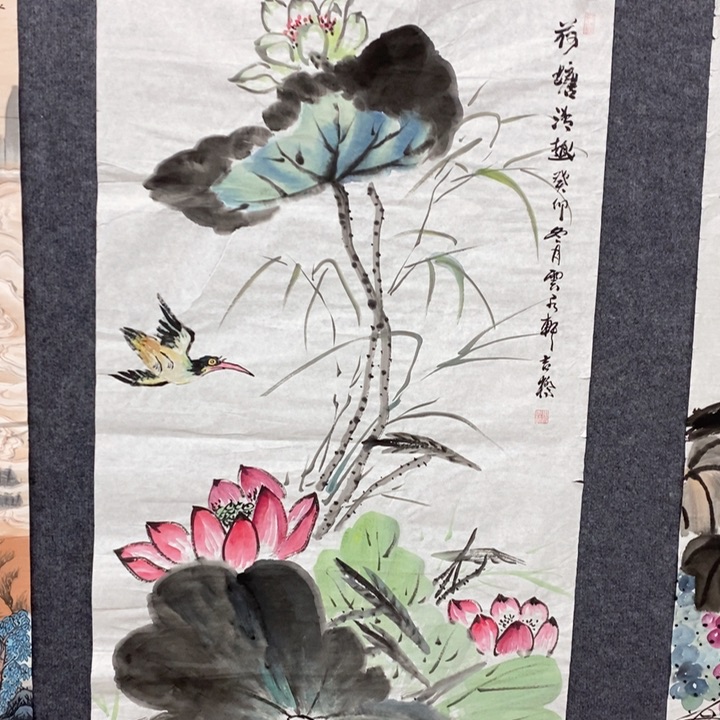 荷塘清趣癸卯冬月雲水軒吉